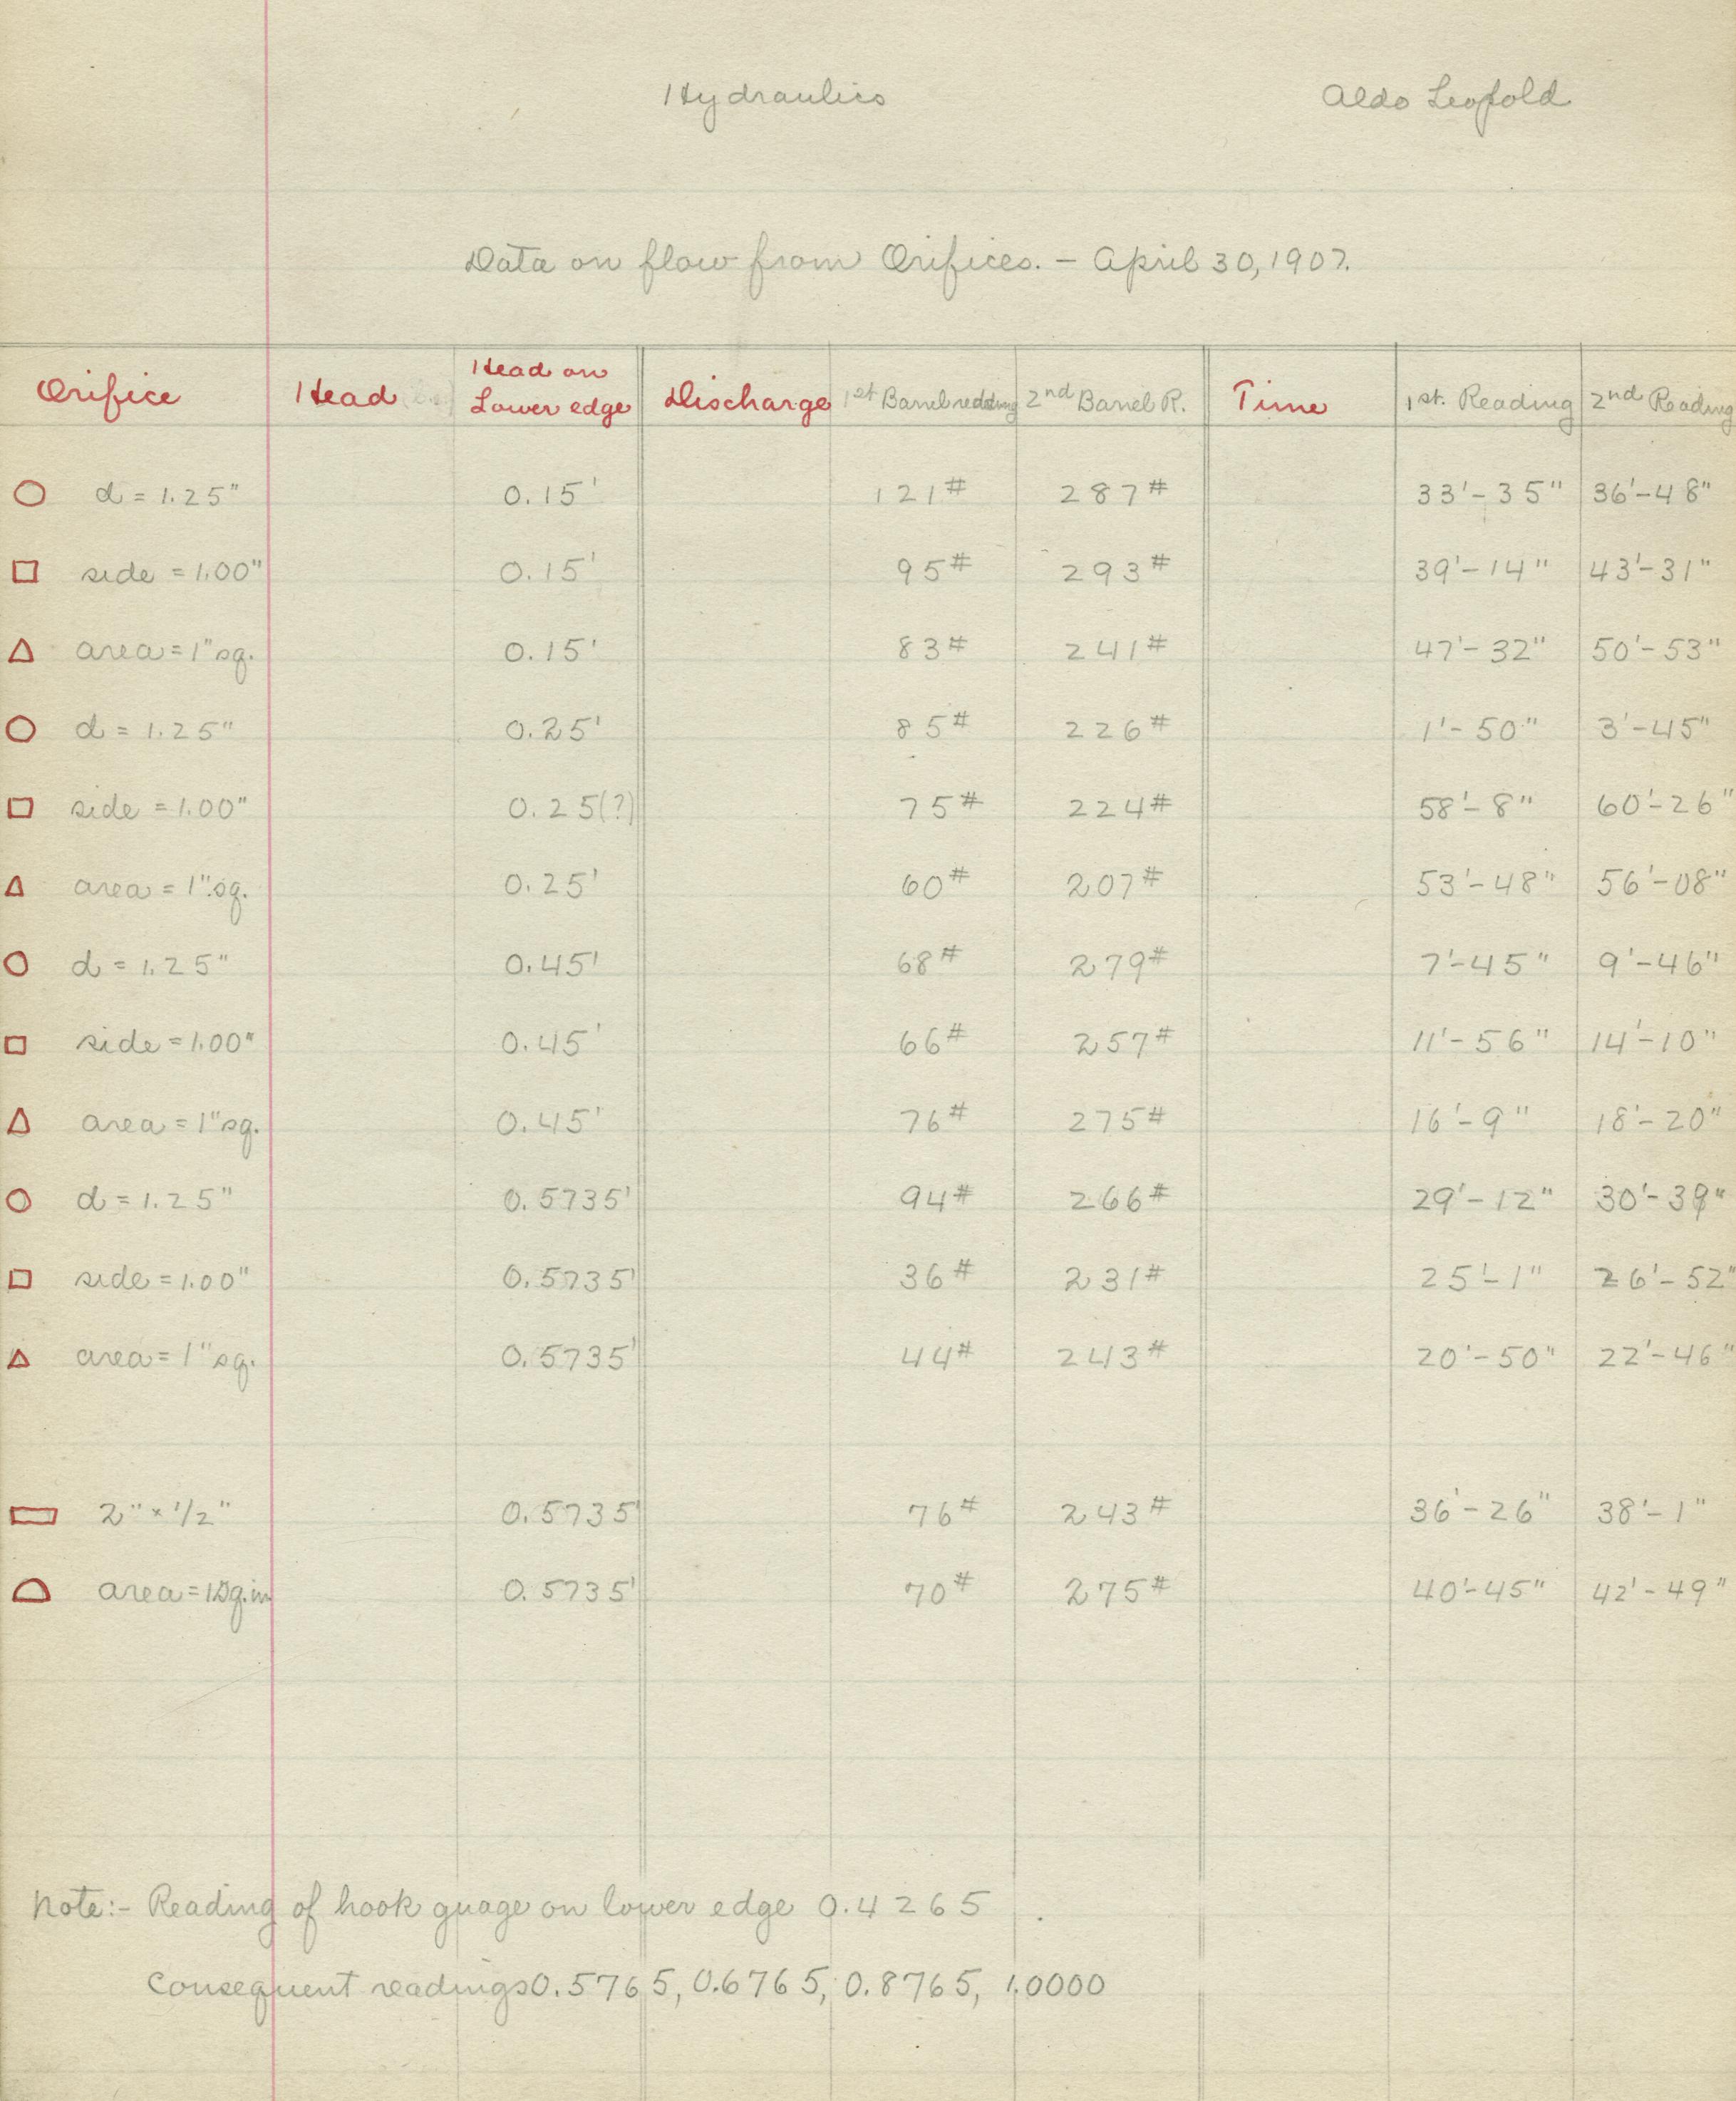 Hydraulics Aldo Leopold
Data on flow from Orifices. – April 30, 1907.
Orifice Head Head on Lower edge Discharge 1st Barrel reading 2nd Barrel R. Time 1st. Reading 2nd Reading
d = 1.25" 0.15' 121# 287# 33'–35" 36'–48"
side = 1.00" 0.15' 95# 293# 39'–14" 43'–31"
area = 1" sq. 0.15' 83# 241# 47'–32" 50'–53"
d = 1.25" 0.25' 85# 226# 1'–50" 3'–45"
side = 1.00" 0.25(?) 75# 224# 58'–8" 60'–26"
area = 1" sq. 0.25' 60# 207# 53'–48" 56'–08"
d = 1.25" 0.45' 68# 279# 7'–45" 9'–46"
side = 1.00" 0.45' 66# 257# 11'–56" 14'–10"
area = 1" sq. 0.45' 76# 275# 16'–9" 18'–20"
d = 1.25" 0.5735' 94# 266# 29'–12" 30'–39"
side = 1.00" 0.5735' 36# 231# 25'–1" 26'–52"
area = 1" sq. 0.5735' 44# 243# 20'–50" 22'–46"
2" × 1/2" 0.5735' 76# 243# 36'–26" 38'–1"
area = 1 sq. in 0.5735' 70# 275# 40'–45" 42'–49"
Note:– Reading of hook guage on lower edge 0.4265
Consequent readings 0.5765, 0.6765, 0.8765, 1.0000